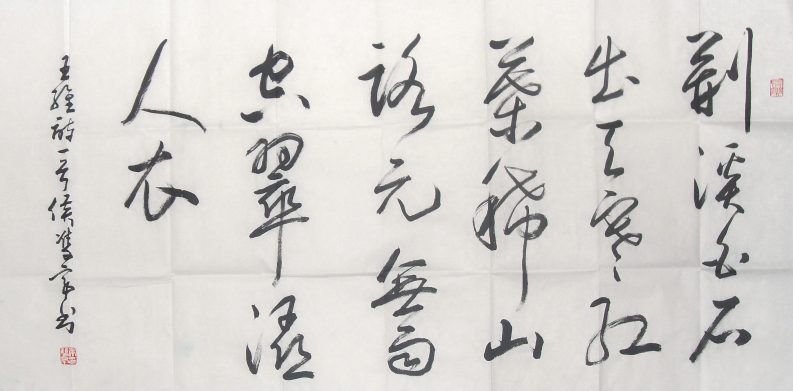 荆溪白石
出天寒红
葉稀山
路元無雨
空翠濕
人衣
王維詩一首侯書